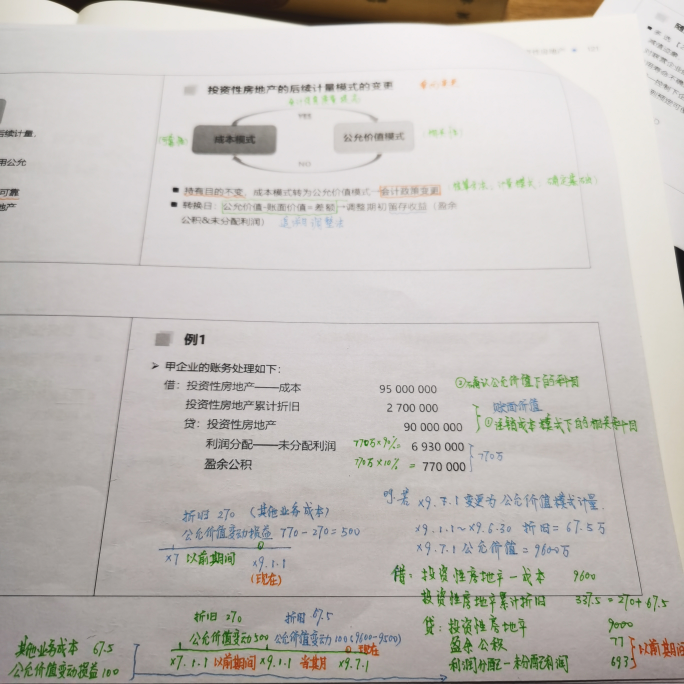 后续计量.
用公允
可靠
地产
投资性房地产的后续计量模式的变更
YES
成本模式
公允价值模式
NO
持有目的不变，成本模式转为公允价值模式—会计政策变更
转换日：公允价值-账面价值=差额→调整期初留存收益（盈余
公积&未分配利润）
追溯调整法
例1
甲企业的账务处理如下：
借：投资性房地产——成本 95 000 000
投资性房地产累计折旧 2 700 000 账面价值
贷：投资性房地产 90 000 000
利润分配——未分配利润 770万×90% 6 930 000
盈余公积 770万×10% = 770 000
770万
折旧 270 （其他业务成本）
公允价值变动损益 770-270=500
×7 以前期间 ×9.1.1
(现在)
×9.7.1 变更为公允价值模式计量.
×9.1.1~×9.6.30 折旧=67.5万
×9.7.1 公允价值=9600万
借：投资性房地产-成本 9600
投资性房地产累计折旧 337.5=270+67.5
贷：投资性房地产 9000
盈余公积 77
利润分配-未分配利润 693
以前期间
折旧 270 折旧 67.5
公允价值变动500 公允价值变动100(9600-9500)
现在
×7.1.1 以前期间 ×9.1.1 当期 ×9.7.1
其他业务成本 67.5
公允价值变动损益 100